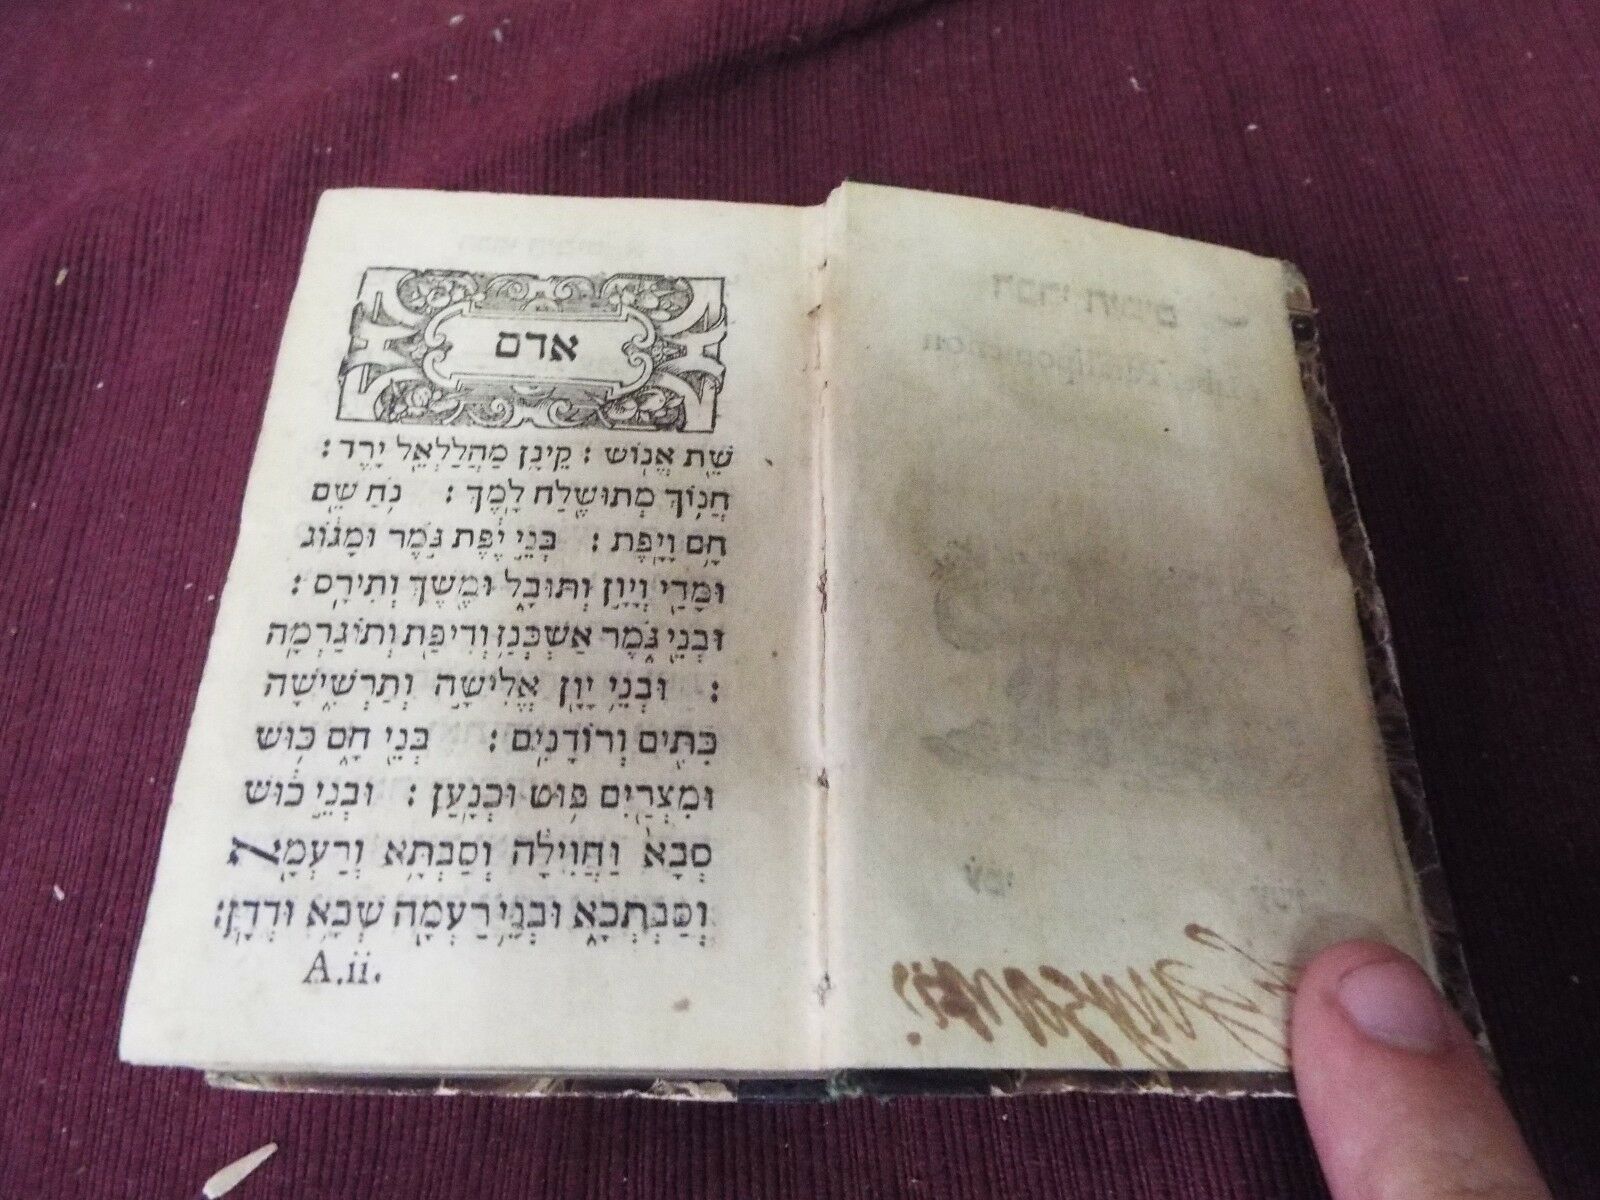 אדם
שֵׁ֖ת אֱנֽוֹשׁ : קֵינָ֥ן מַהֲלַלְאֵ֖ל יָֽרֶד :
חֲנ֥וֹךְ מְתוּשֶׁ֖לַח לָֽמֶךְ : נֹ֥חַ שֵׁ֖ם
חָ֥ם וָיָֽפֶת : בְּנֵ֣י יֶ֔פֶת גֹּ֣מֶר וּמָג֔וֹג
וּמָדַ֖י וְיָוָ֣ן וְתוּבָ֑ל וּמֶ֖שֶׁךְ וְתִירָֽס :
וּבְנֵ֖י גֹּ֑מֶר אַשְׁכְּנַ֥ז וְדִיפַ֖ת וְתוֹגַרְמָֽה
: וּבְנֵ֥י יָוָ֖ן אֱלִישָׁ֣ה וְתַרְשִׁ֑ישָׁה
כִּתִּ֖ים וְרוֹדָנִֽים : בְּנֵ֖י חָ֑ם כּ֥וּשׁ
וּמִצְרַ֖יִם פּ֥וּט וּכְנָֽעַן : וּבְנֵ֣י כ֔וּשׁ
סְבָא֙ וַחֲוִילָ֔ה וְסַבְתָּ֥א וְרַעְמָ֖א
וְסַבְתְּכָ֑א וּבְנֵ֥י רַעְמָ֖ה שְׁבָ֥א וּדְדָֽן:
A.ii.